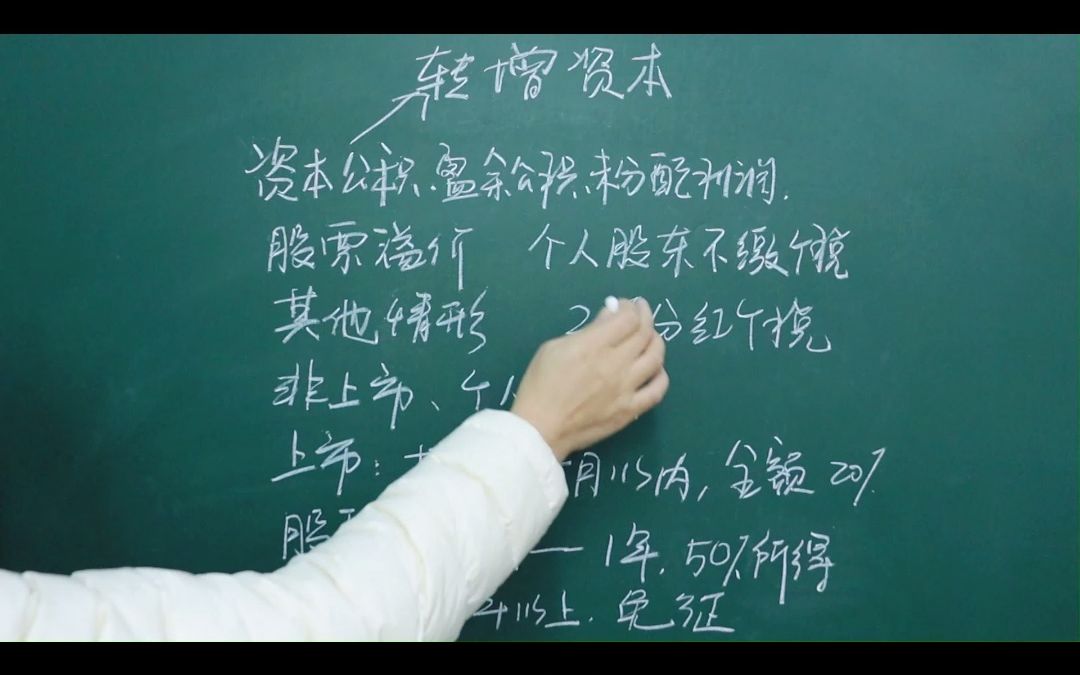 转增资本
资本公积、盈余公积、未分配利润.
股票溢价 个人股东不缴个税
其他情形 2 分红个税
非上市、个人
上市: 月以内, 全额 20%
股 — 1年. 50%所得
年以上. 免征